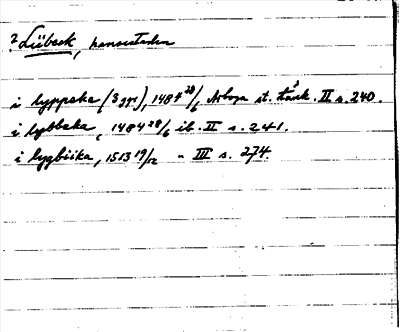 2 Lübeck, hansestaden
i lyppeka (3 ggr), 1484 28/6, Arboga st. tänk. II s. 240.
i lybbeka, 1484 28/6 ib. II s. 241.
i lygbiika, 1513 19/12 " III s. 274.